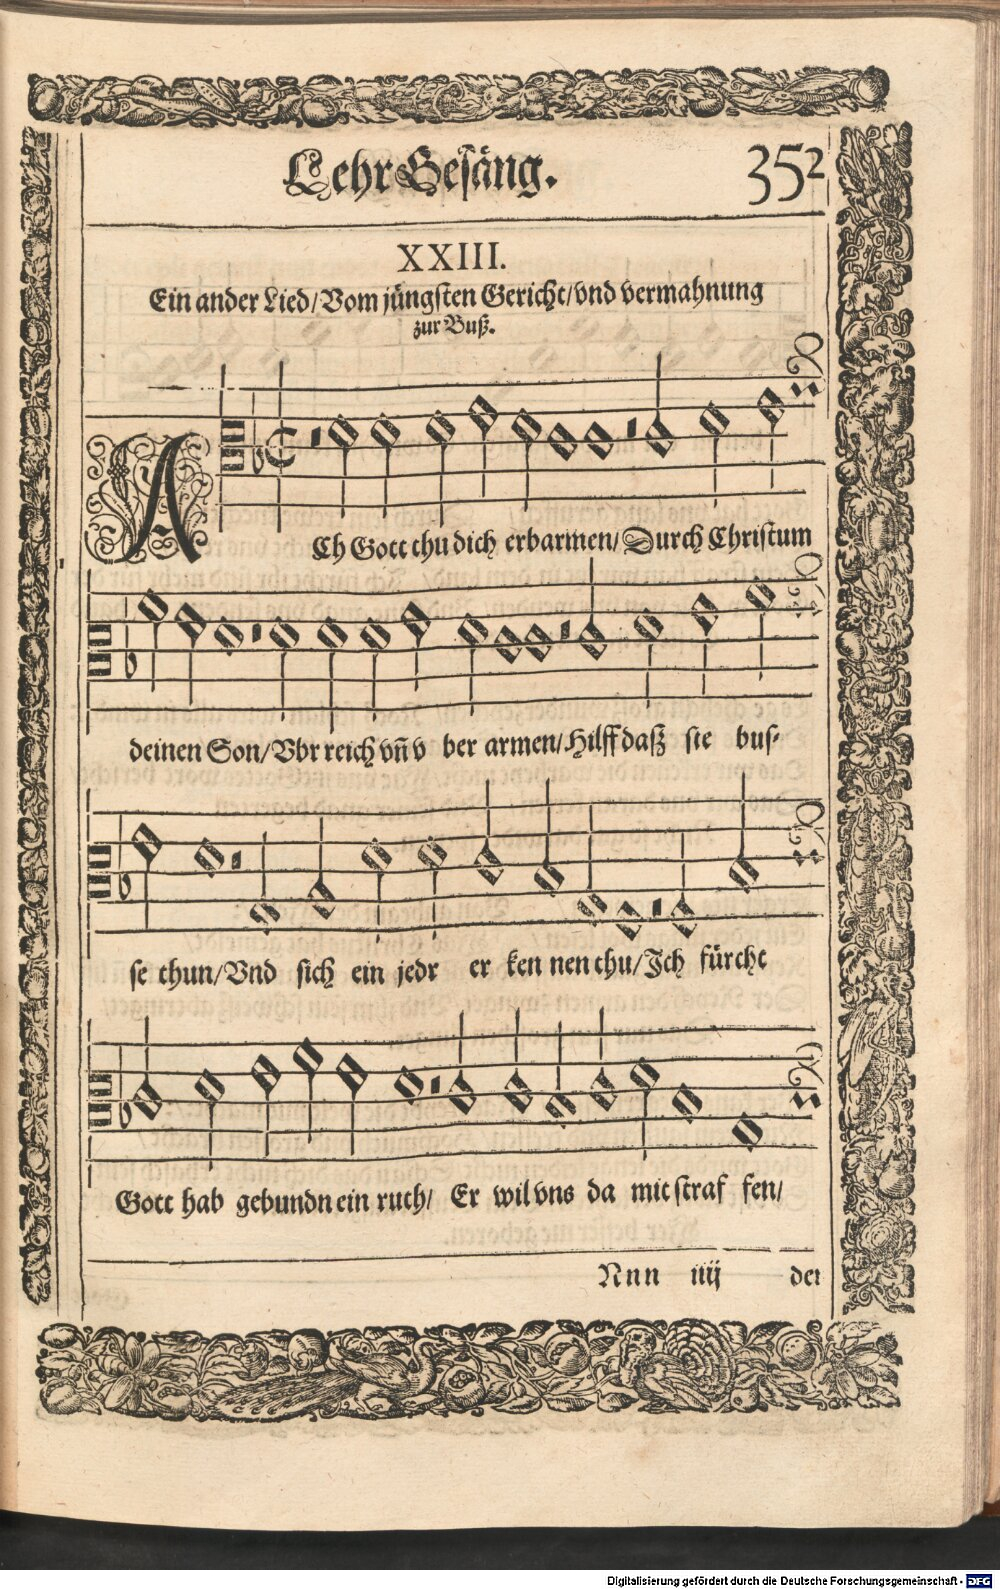 LehrGesäng. 352
XXIII.
Ein ander Lied/Vom jüngsten Gericht/vnd vermahnung
zur Buß.
ACh Gott thu dich erbarmen/Durch Christum
deinen Son/Vbr reich vñ v ber armen/Hilff daß sie bus-
se thun/Vnd sich ein jedr er ken nen thu/Ich fürcht
Gott hab gebundn ein ruth/ Er wil vns da mit straf fen/
Nnn iiij der
Digitalisierung gefördert durch die Deutsche Forschungsgemeinschaft - DFG